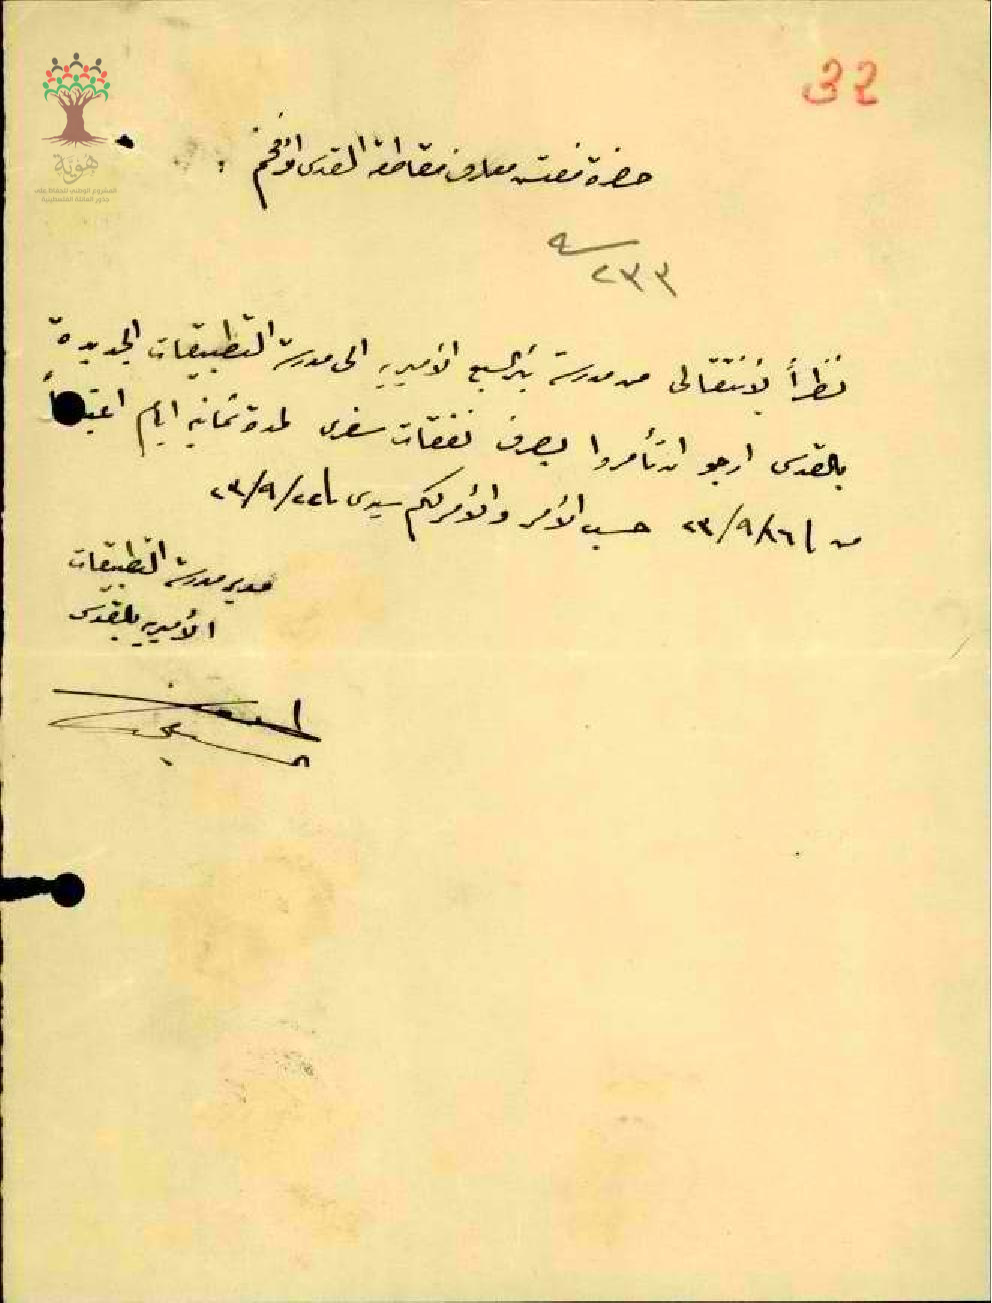 32
هوية
المشروع الوطني للحفاظ على
جذور العائلة الفلسطينية
حضرة مفتش معارف مقاطعة القدس الأفخم :
٢٣٣
نظراً لانتقالي من مدرسة بئر السبع الأميرية الى مدرسة التطبيقات الجديدة
بالقدس ارجو ان تأمروا بصرف نفقات سفري لمدة ثمانية ايام
من ١٦/٩/٢٣ حسب الأمر والأمر لكم سيدي ٢٣/٩/٢٢
مدير مدرسة التطبيقات
الأميرية بالقدس